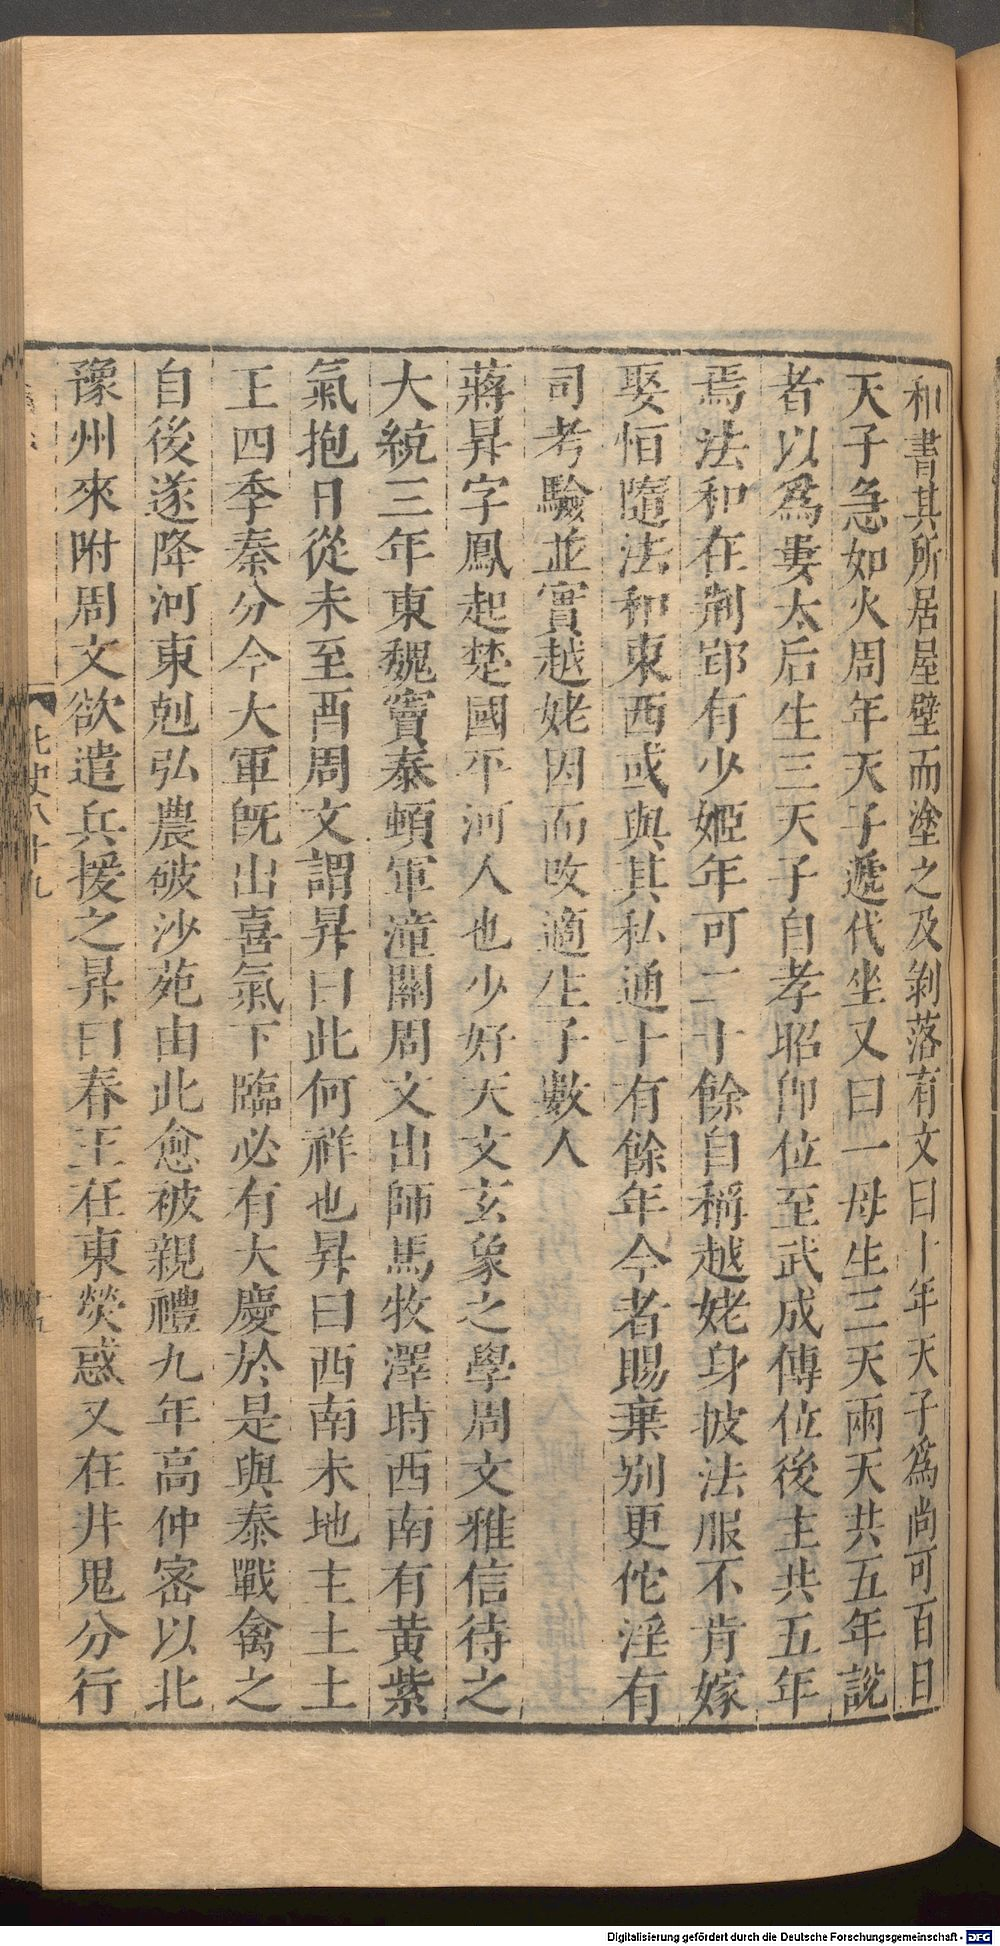 和書其所居屋壁而塗之及剝落有文曰十年天子爲尚可百日
天子急如火周年天子遞代坐又曰一母生三天兩天共五年說
者以爲婁太后生三天子自孝昭卽位至武成傳位後主共五年
焉法和在荆郢有少姬年可二十餘自稱越姥身披法服不肯嫁
娶恒隨法和東西或與其私通十有餘年今者賜棄別更佗淫有
司考驗並實越姥因而改適生子數人
蔣昇字鳳起楚國平河人也少好天文玄象之學周文雅信待之
大統三年東魏竇泰頓軍潼關周文出師馬牧澤時西南有黃紫
氣抱日從未至酉周文謂昇曰此何祥也昇曰西南未地主土土
王四季秦分今大軍旣出喜氣下臨必有大慶於是與泰戰禽之
自後遂降河東剋弘農破沙苑由此愈被親禮九年高仲密以北
豫州來附周文欲遣兵援之昇曰春王在東熒惑又在井鬼分行
北史八十九
十五
Digitalisierung gefördert durch die Deutsche Forschungsgemeinschaft - DFG